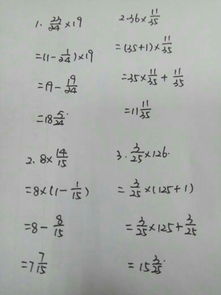 1. 23/24 × 19
= (1 - 1/24) × 19
= 19 - 19/24
= 18 5/24
2. 36 × 11/35
= (35+1) × 11/35
= 35 × 11/35 + 11/35
= 11 11/35
2. 8 × 14/15
= 8 × (1 - 1/15)
= 8 - 8/15
= 7 7/15
3. 3/25 × 126
= 3/25 × (125 + 1)
= 3/25 × 125 + 3/25
= 15 3/25